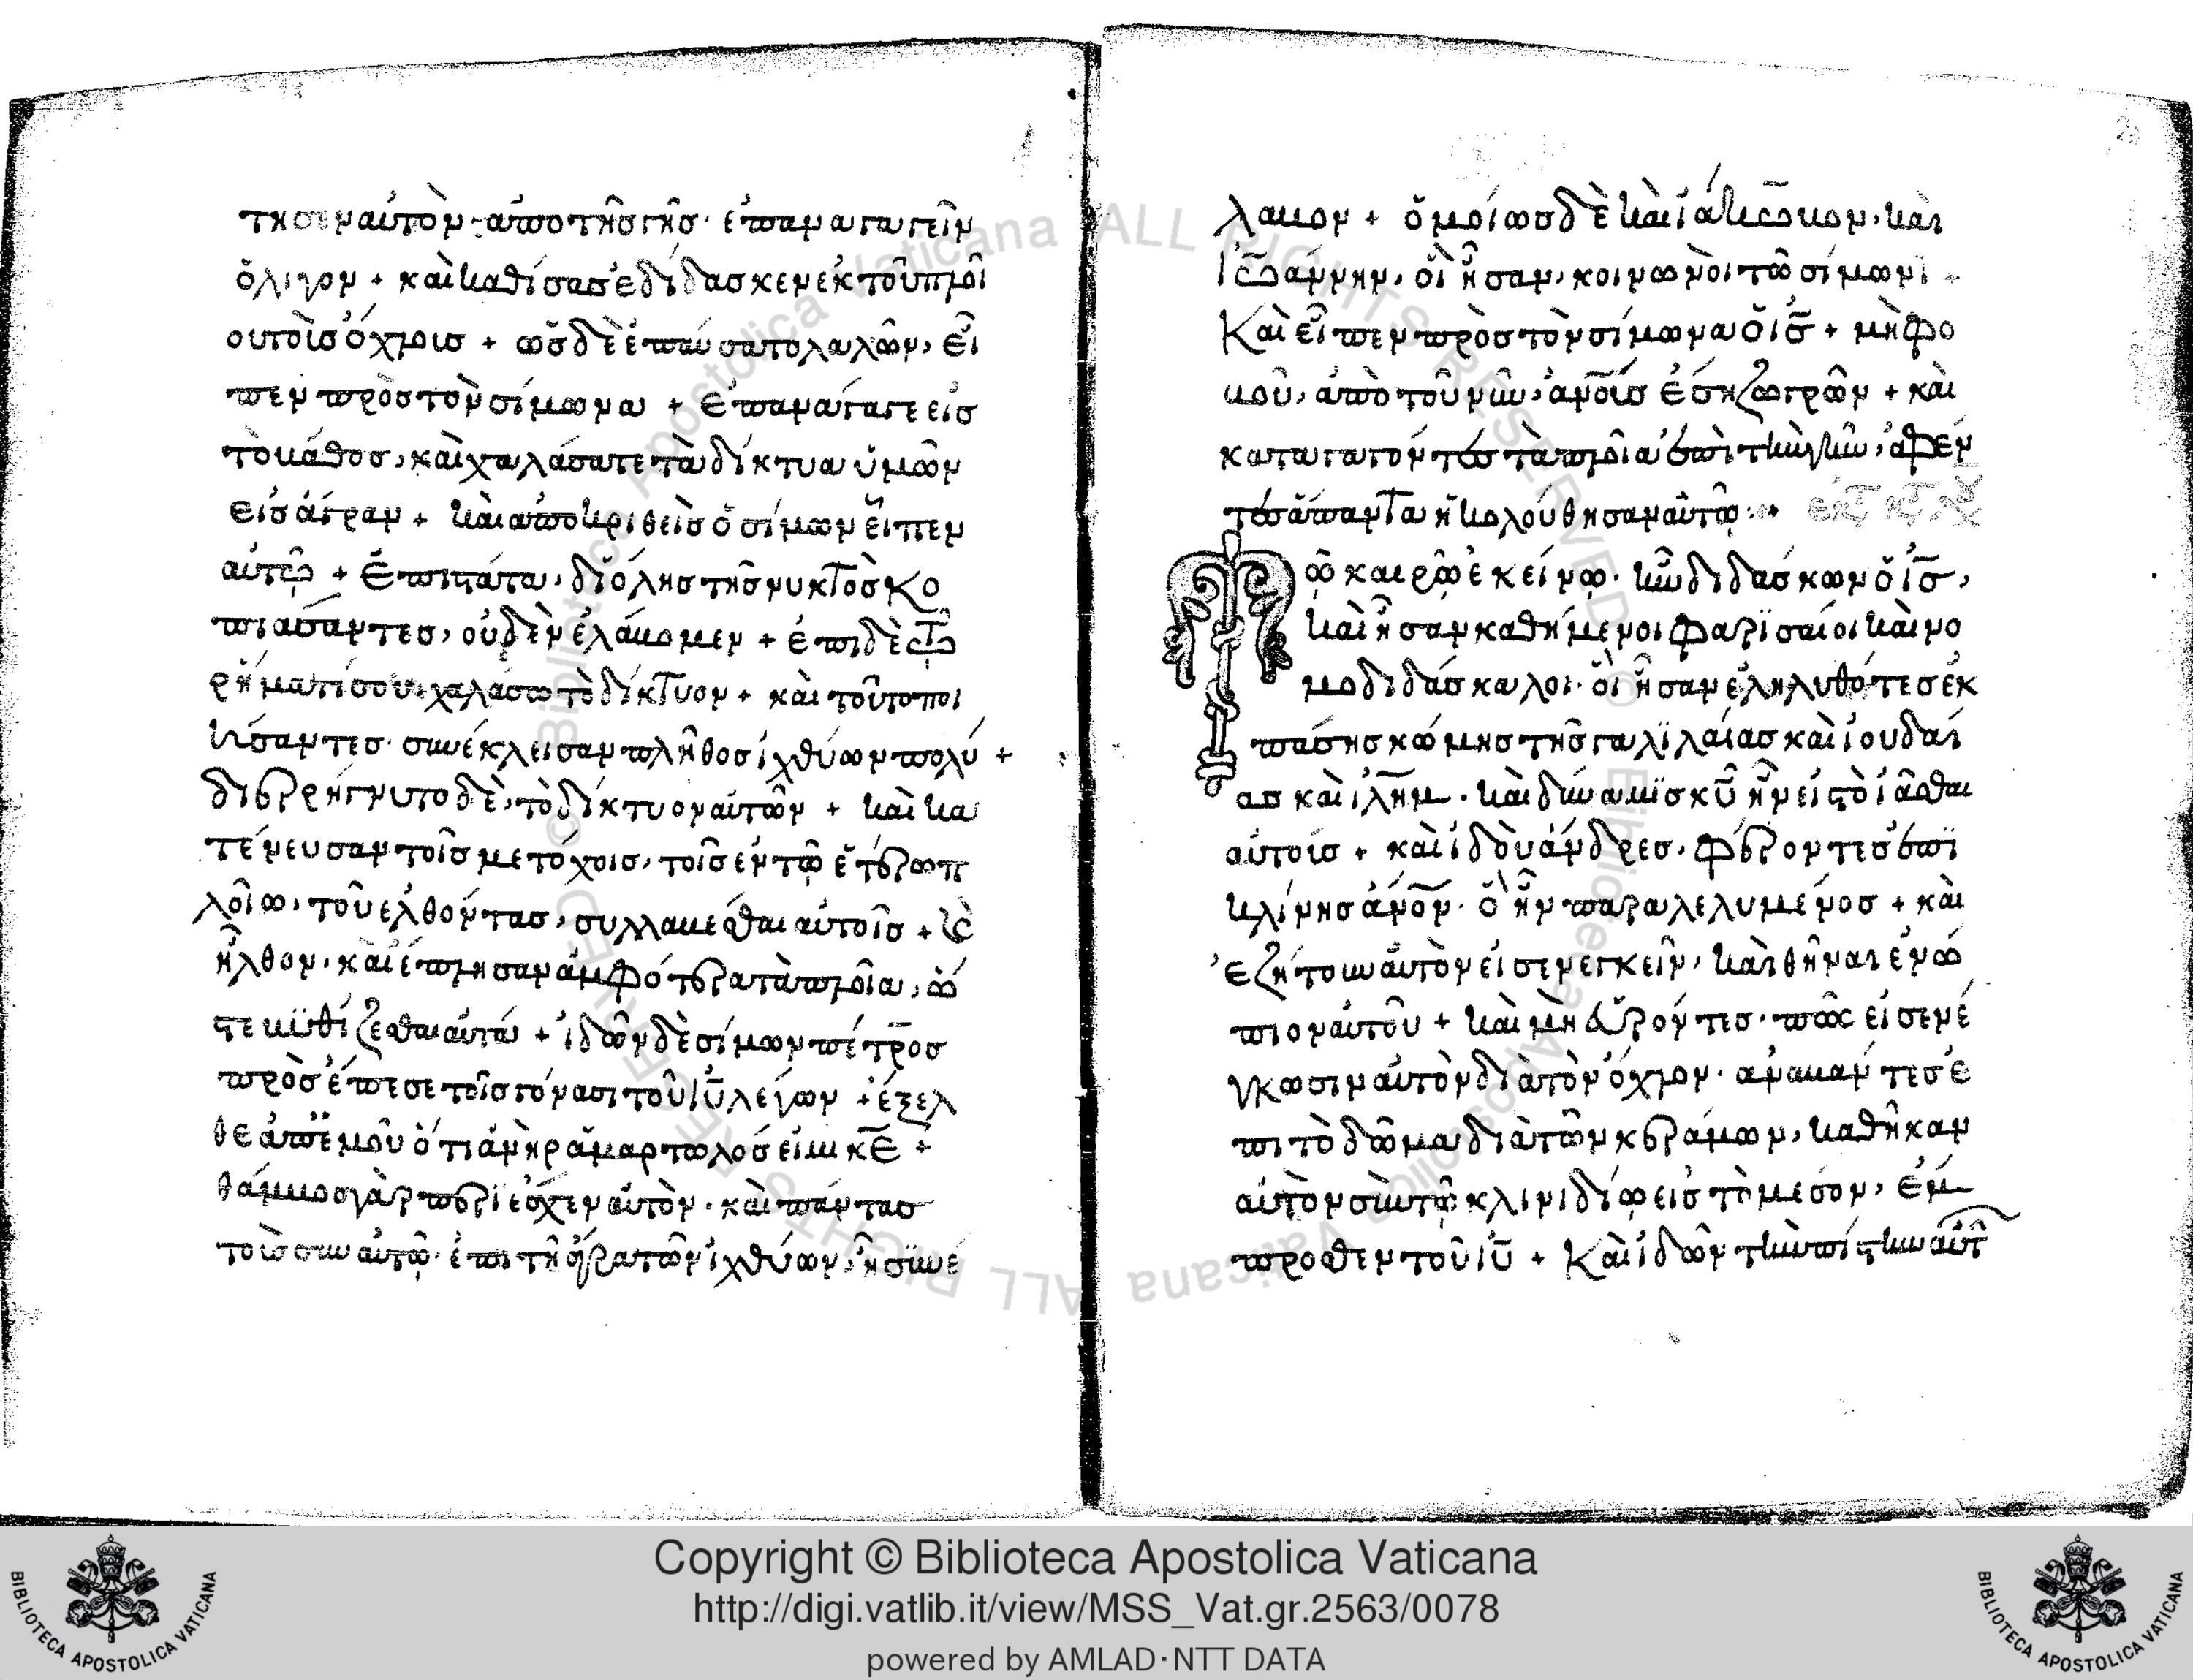 τησεν αὐτὸν ἀπὸ τῆς γῆς· ἐπαναγαγεῖν
ὀλίγον + καὶ καθίσας ἐδίδασκεν ἐκ τοῦ πλοῖ
ου τοῖς ὄχλοις + ὡς δὲ ἐπαύσατο λαλῶν, εἶ
πεν πρὸς τὸν σίμωνα + Ἐπανάγαγε εἰς
τὸ βάθος, καὶ χαλάσατε τὰ δίκτυα ὑμῶν
εἰς ἄγραν + καὶ ἀποκριθεὶς ὁ σίμων εἶπεν
αὐτῶ + Ἐπιστάτα, δι ὅλης τῆς νυκτὸς κο
πιάσαντες, οὐδὲν ἐλάβομεν + ἐπι δὲ τῶ
ρήματί σου, χαλάσω τὸ δίκτυον + καὶ τοῦτο ποι
ήσαντες· συνέκλεισαν πλῆθος ἰχθύων πολύ +
διερρήγνυτο δὲ, τὸ δίκτυον αὐτῶν + καὶ κα
τένευσαν τοῖς μετόχοις, τοῖς ἐν τῶ ἑτέρω π
λοίω, τοῦ ἐλθόντας, συλλαβέσθαι αὐτοῖς + καὶ
ἦλθον, καὶ ἔπλησαν ἀμφότερα τὰ πλοῖα, ὥ
στε βυθίζεσθαι αὐτά + ἰδὼν δὲ σίμων πέτρος
πρὸσέπεσε τοῖς γόνασι τοῦ ιῦ λέγων + ἔξελ
θε ἀπ ἐμοῦ ὅτι ἀνὴρ ἁμαρτωλός εἰμι κε +
θάμβος γὰρ περιέσχεν αὐτὸν· καὶ πάντας
τοὺς συν αὐτῶ· ἐπι τῆ ἄγρα τῶν ἰχθύων, ἧ συνέ
λαβον + ὁμοίως δὲ καὶ ἰάκωβον, καὶ
Ἰωάννην, οἳ ἦσαν, κοινωνοὶ τῶ σίμωνι
Καὶ εἶπεν πρὸς τὸν σίμωνα ὁ ις + μὴ φο
βοῦ, ἀπὸ τοῦ νῦν, ἀνοῖς ἔση ζωγρῶν + καὶ
καταγαγόντες τὰ πλοῖα ἐπὶ τὴν γῆν, ἀφέν
τες ἅπαντα ἠκολούθησαν αὐτῶ
Τῶ καιρῶ ἐκείνω· ἦν διδάσκων ὁ ις,
καὶ ἦσαν καθήμενοι φαρισαίοι καὶ νο
μοδιδάσκαλοι· οἳ ἦσαν ἐληλυθότες ἐκ
πάσης κώμης τῆς γαλιλαίας καὶ ἰουδαί
ας καὶ ιλημ. καὶ δύναμις κυ ἦν εἰς τὸ ἰᾶσθαι
αὐτοίς + καὶ ἰδοὺ ἄνδρες, φέροντες ἐπὶ
κλίνης ἄνον· ὃ ἦν παραλελυμένος + καὶ
ἐζήτουν αὐτὸν εἰσενεγκεῖν, καὶ θῆναι ἐνώ
πιον αὐτοῦ + καὶ μὴ εὑρόντες· πῶς εἰσενέ
γκωσιν αὐτὸν διὰ τὸν ὄχλον· ἀναβάντες ἐ
πι τὸ δῶμα διὰ τῶν κεράμων, καθῆκαν
αὐτὸν σὺν τῶ κλινιδίω εἰς τὸ μέσον, ἔμ
προσθεν τοῦ ιῦ + Καὶ ἰδὼν τὴν πίστην αὐτ